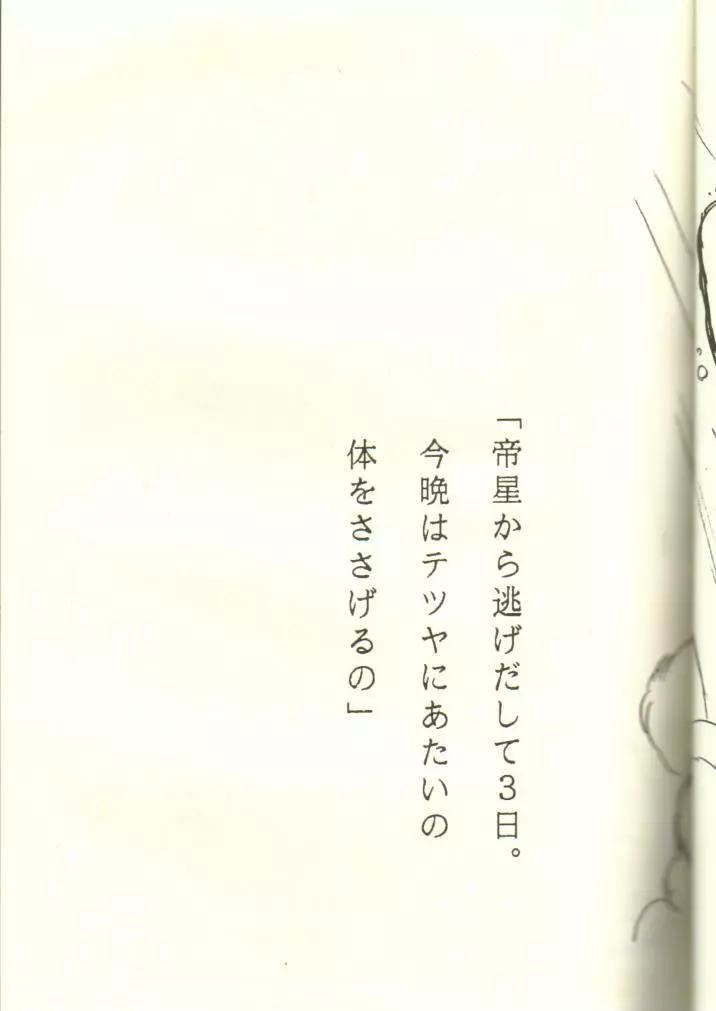 「帝星から逃げだして3日。
今晩はテツヤにあたいの
体をささげるの」